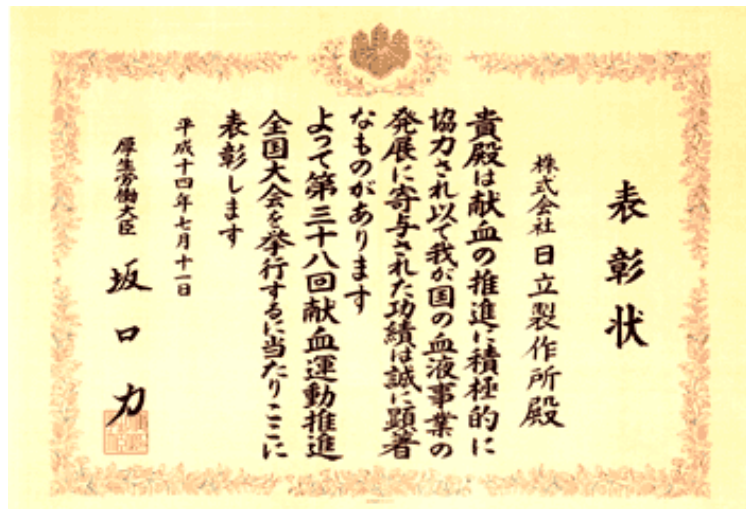 表彰状
株式会社日立製作所殿
貴殿は献血の推進に積極的に
協力され以て我が国の血液事業の
発展に寄与された功績は誠に顕著
なものがあります
よって第三十八回献血運動推進
全国大会を挙行するに当たりここに
表彰します
平成十四年七月十一日
厚生労働大臣
坂口力